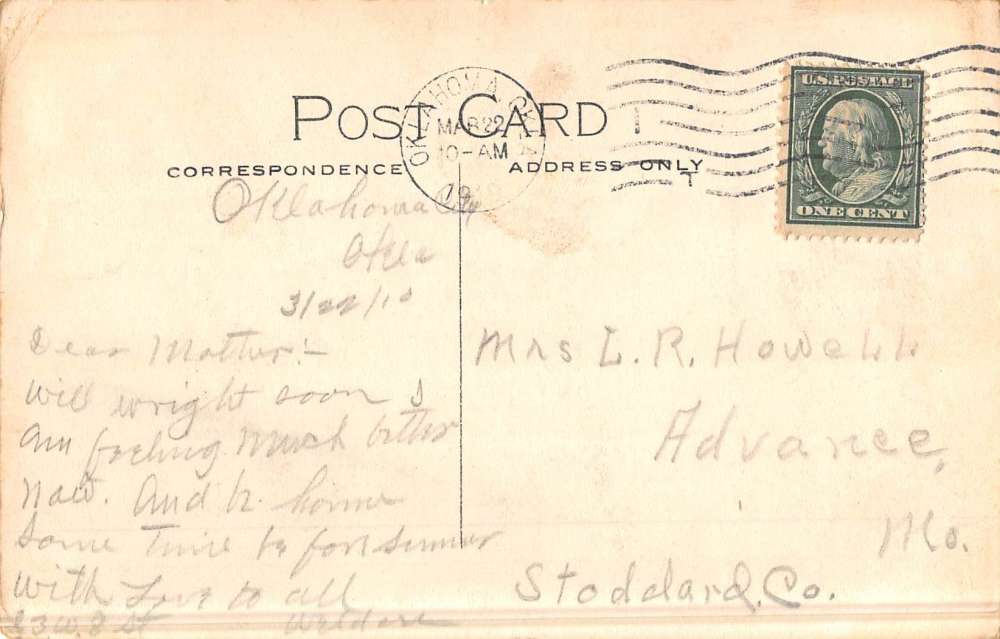 POST CARD
CORRESPONDENCE
ADDRESS ONLY
OKLAHOMA CITY
MAR 22
10-AM
1910
U.S. POSTAGE
ONE CENT
Oklahoma City
Okla
3/22/10
Dear Mother:-
will wright soon I
am feeling much better
now. And b. home
some time be fore summer
with Love to all
83 W. 8 St
Mrs L. R. Howell
Advance,
Mo.
Stoddard, Co.